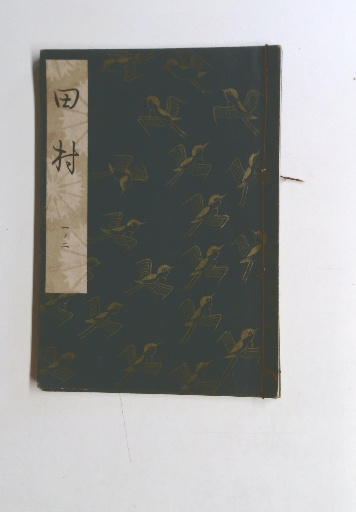 田村
一ノ二